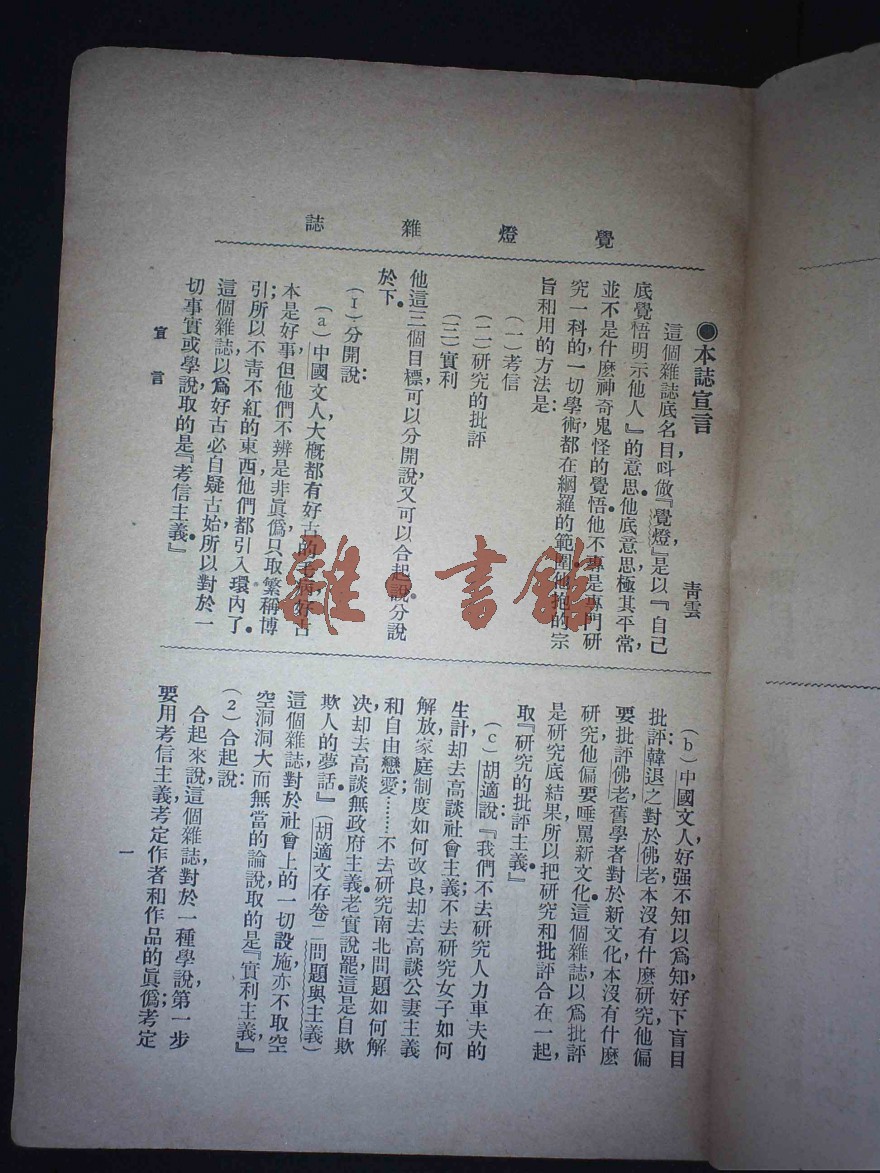 覺燈雜誌
●本誌宣言
青雲
這個雜誌底名目呌做『覺燈』,是以『自己
底覺悟明示他人』的意思。他底意思極其平常,
並不是什麽神奇鬼怪的覺悟。他不專是專門研
究一科的一切學術,都在網羅的範圍。他抱的宗
旨和用的方法是:
(一)考信
(二)研究的批評
(三)實利
他這三個目標,可以分開說,又可以合起說。分說
於下。
(1)分開說:
(a)中國文人,大槪都有好古的毛病,好古
本是好事,但他們不辨是非眞僞,只取繁稱博
引;所以不靑不紅的東西,他們都引入環內了。
這個雜誌,以爲好古必自疑古始,所以對於一
切事實或學說,取的是『考信主義。』
宣言
(b)中國文人,好强不知以爲知,好下盲目
批評:韓退之對於佛老,本沒有什麽研究,他偏
要批評佛老;舊學者對於新文化,本沒有什麽
研究,他偏要唾罵新文化。這個雜誌,以爲批評
是研究底結果,所以把研究和批評合在一起,
取『研究的批評主義。』
(c)胡適說:『我們不去硏究人力車夫的
生計,却去高談社會主義;不去研究女子如何
解放,家庭制度如何改良,却去高談公妻主義
和自由戀愛;………不去研究南北問題如何解
决,却去高談無政府主義。老實說罷,這是自欺
欺人的夢話。』(胡適文存卷二問題與主義)
這個雜誌,對於社會上的一切設施,亦不取空
空洞洞大而無當的論說,取的是『實利主義。』
(2)合起說:
合起來說,這個雜誌,對於一種學說,第一步
要用考信主義,考定作者和作品的眞僞;考定
一
雜·書館